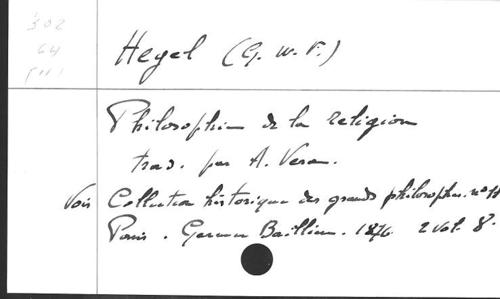 302
64
Hegel (G. W. F.)
Philosophie de la religion
trad. par A. Vera.
Voir Collection historique des grands philosophes. nº
Paris. Germer Baillière. 1876 2 vol. 8º